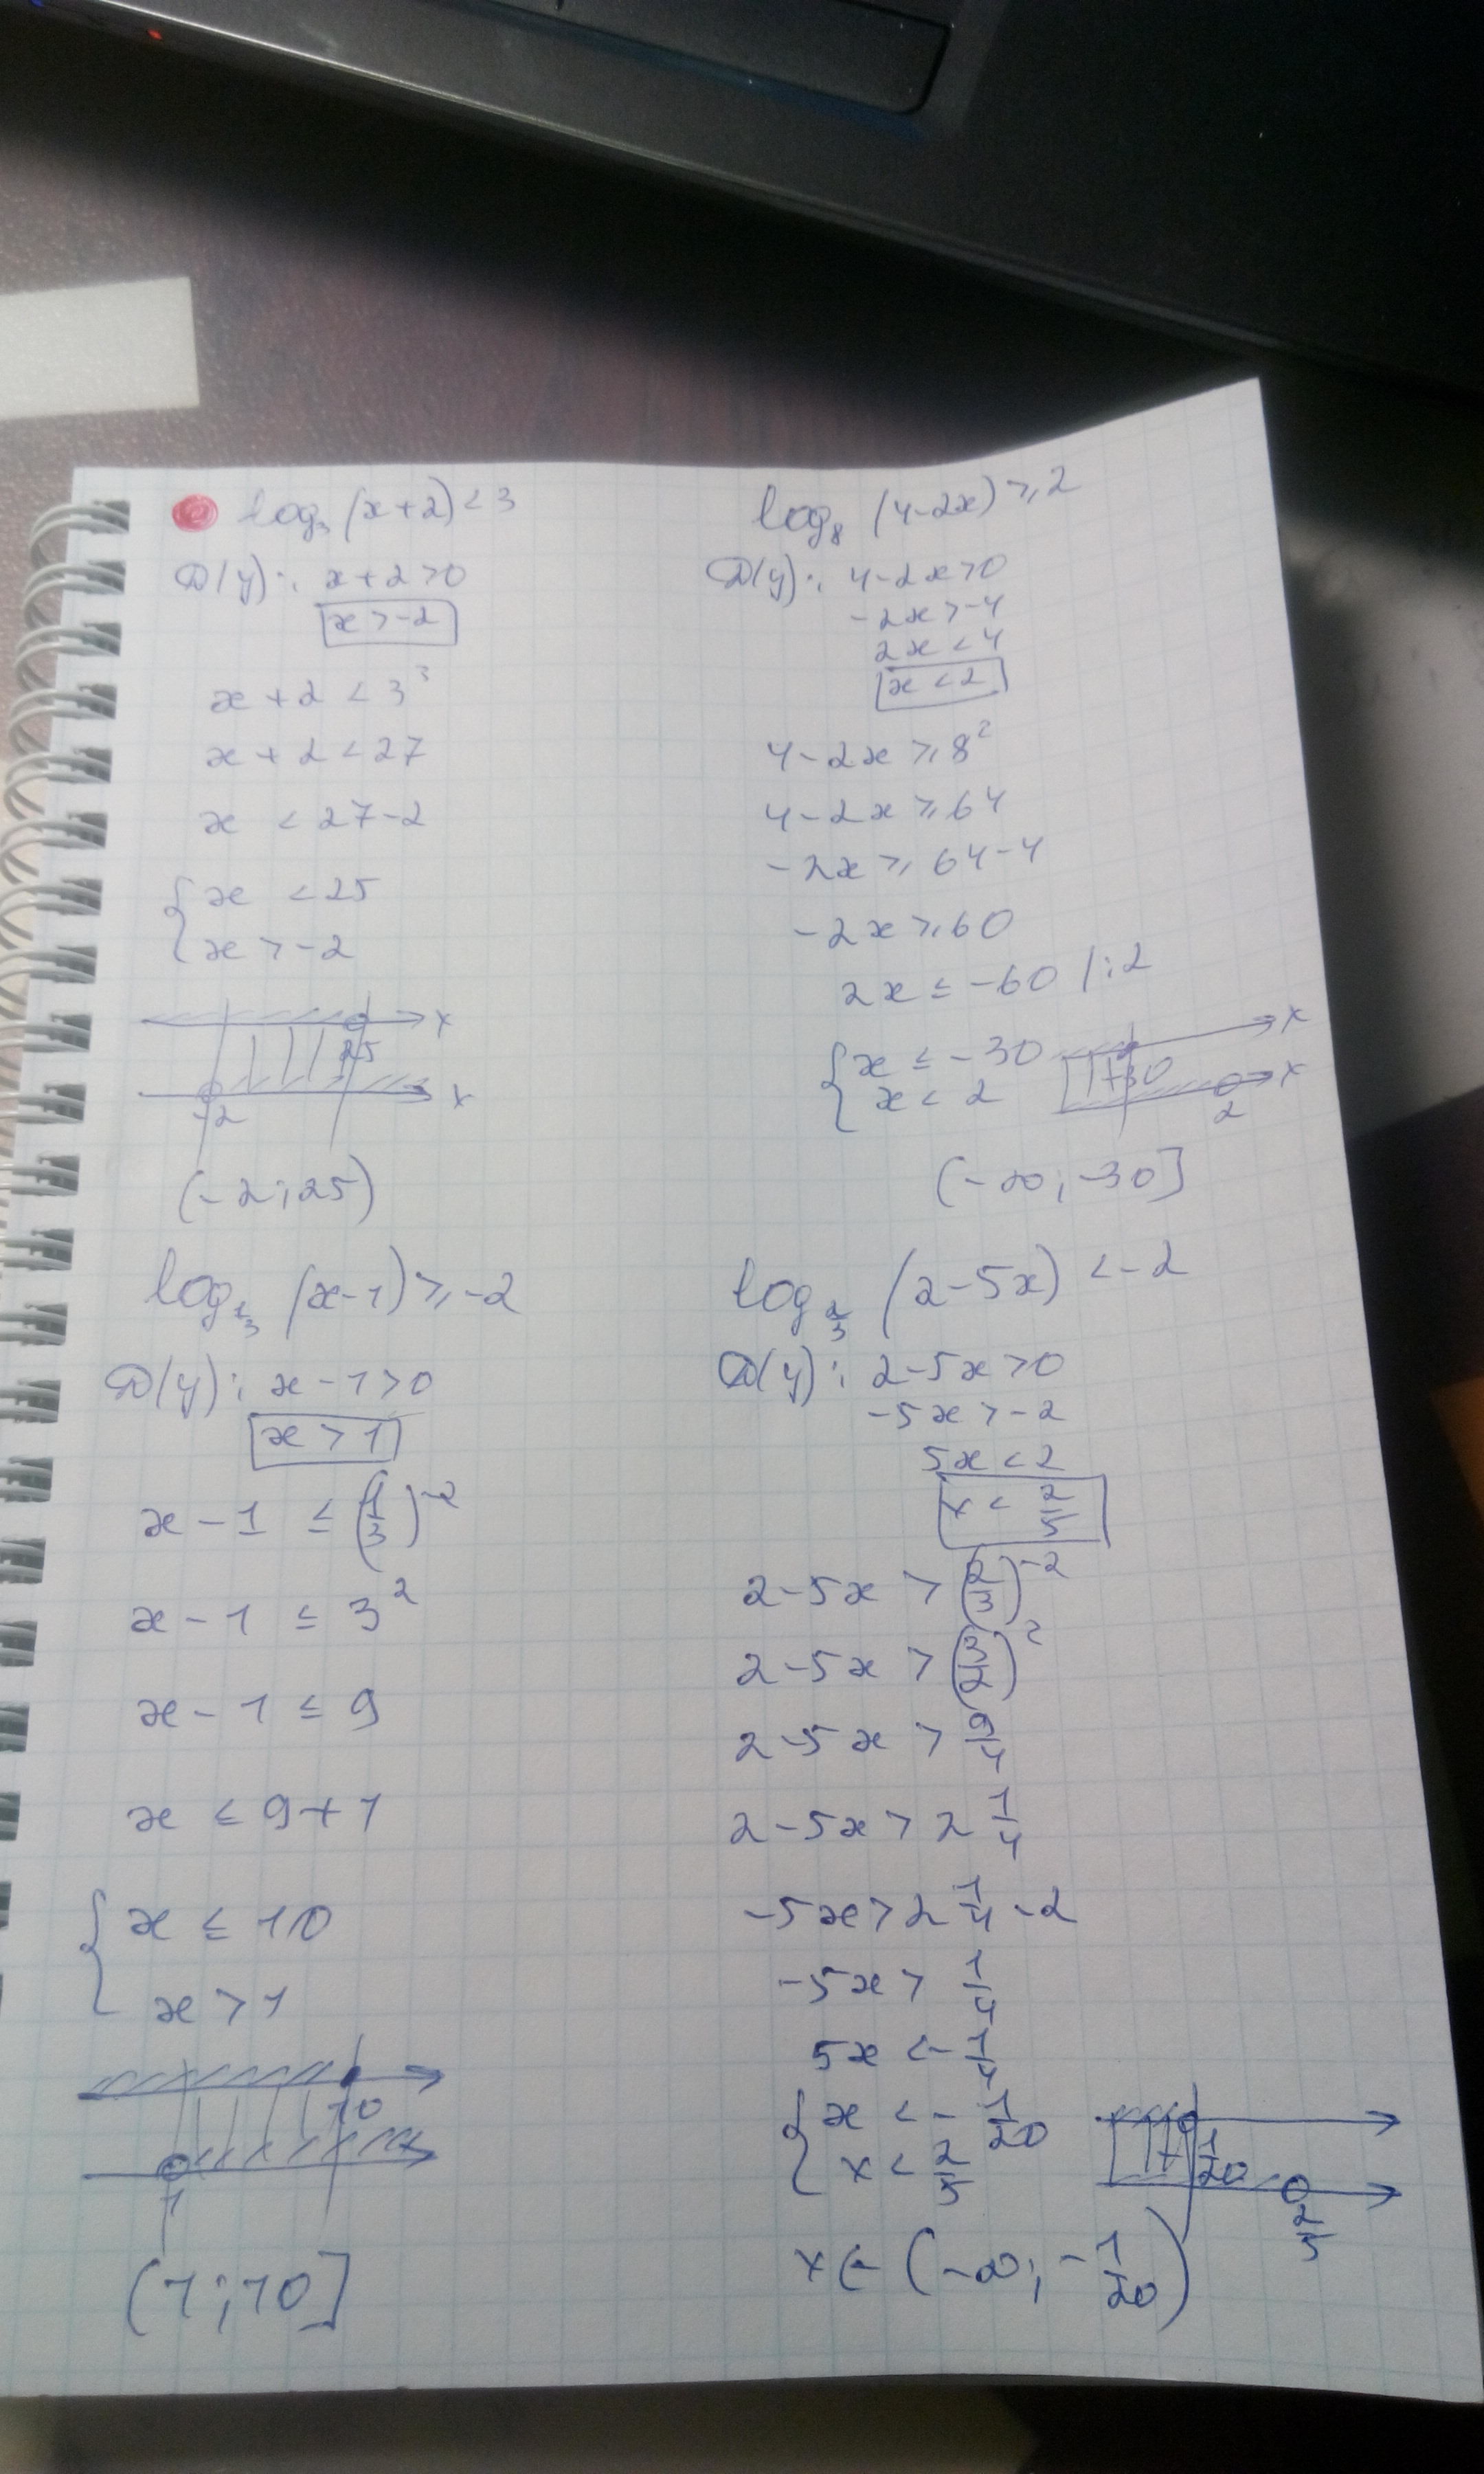 log₃ (x+2) < 3
D(y): x+2>0
x > -2
x + 2 < 3³
x + 2 < 27
x < 27-2
x < 25
x > -2
x
25
x
-2
(-2; 25)
log₈ (4-2x) ≥ 2
D(y): 4-2x>0
-2x > -4
2x < 4
x < 2
4-2x ≥ 8²
4-2x ≥ 64
-2x ≥ 64-4
-2x ≥ 60
2x ≤ -60 |:2
x ≤ -30
x < 2
x
-30
x
2
(-∞; -30]
log_{1/3} (x-1) ≥ -2
D(y): x-1>0
x > 1
x - 1 ≤ (1/3)⁻²
x - 1 ≤ 3²
x - 1 ≤ 9
x ≤ 9+1
x ≤ 10
x > 1
10
1
(1; 10]
log_{2/3} (2-5x) < -2
D(y): 2-5x>0
-5x > -2
5x < 2
x < 2/5
2-5x > (2/3)⁻²
2-5x > (3/2)²
2-5x > 9/4
2-5x > 2 1/4
-5x > 2 1/4 - 2
-5x > 1/4
5x < -1/4
x < -1/20
x < 2/5
-1/20
2/5
x ∈ (-∞; -1/20)